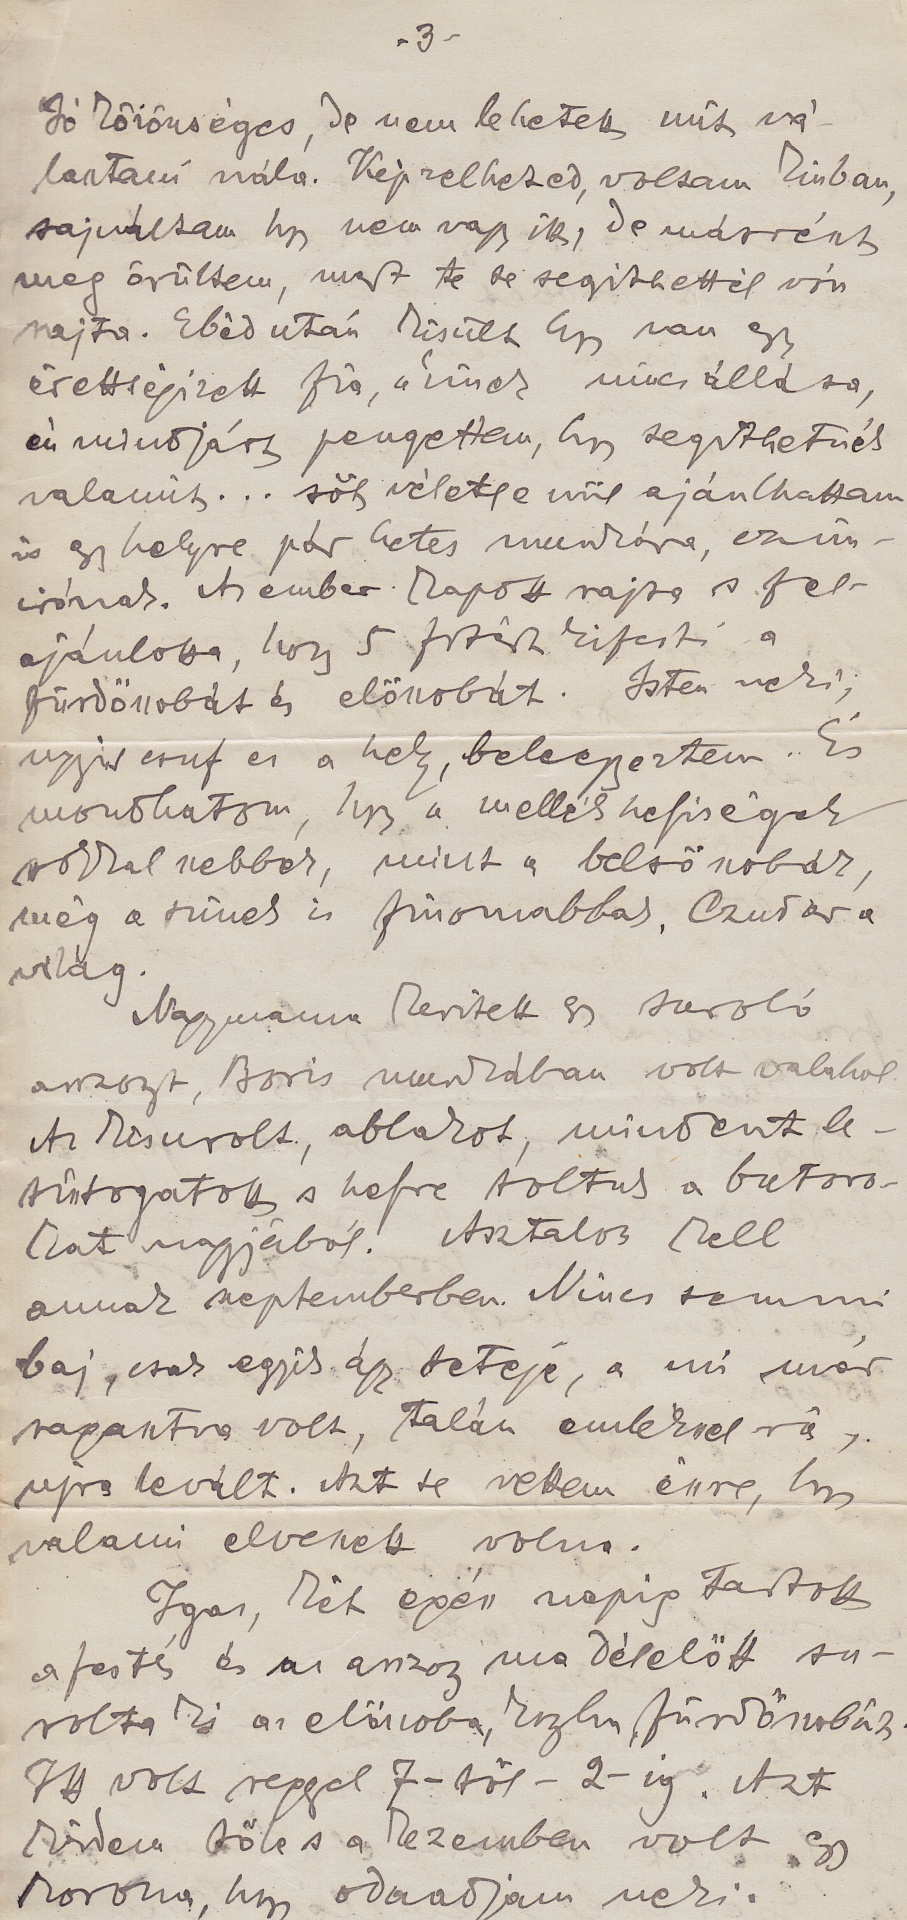 -3-
Jó közönséges, de nem lehetett mit vá-
lasztani nála. Képzelheted, voltam kinban,
sajnáltam hgy nem vagy itt, de másrészt
meg örültem, mert te se segithettél vón
rajta. Ebéd után kisült hgy van egy
érettségizett fia, a kinek nincs állása,
én mindjárt pengettem, hgy segithetnék
valamit... sőt véletlenül ajánlhattam
is egy helyre pár hetes munkára,
irónak. Az ember kapott rajta s fel-
ajánlotta, hogy 5 frtért kifesti a
fürdőszobát és előszobát. Isten neki,
ugyis csuf ez a hely, beleegyeztem. És
mondhatom, hgy a mellékhelyiségek
sokkal szebbek, mint a belső szobák,
még a szinek is finomabbak. Czudar a
világ.
Nagymama keritett egy suroló
asszonyt, Boris munkában volt valahol
Az kisurolt, ablakot, mindent le-
tisztogatott s helyre toltuk a butoro-
kat nagyjából. Asztalos kell
annak szeptemberben. Nincs semmi
baj, csak egyik ágy teteje, a mi már
ragasztva volt, talán emlékszel rá,
ujra levált. Azt se vettem észre, hgy
valami elveszett volna.
Igaz, két egész napig tartott
a festés és az asszony ma délelőtt su-
rolta ki az előszoba, konyha, fürdőszobát.
Itt volt reggel 7-től-2-ig. Azt
kérdem tőle s a kezemben volt egy
korona, hgy odaadjam neki.